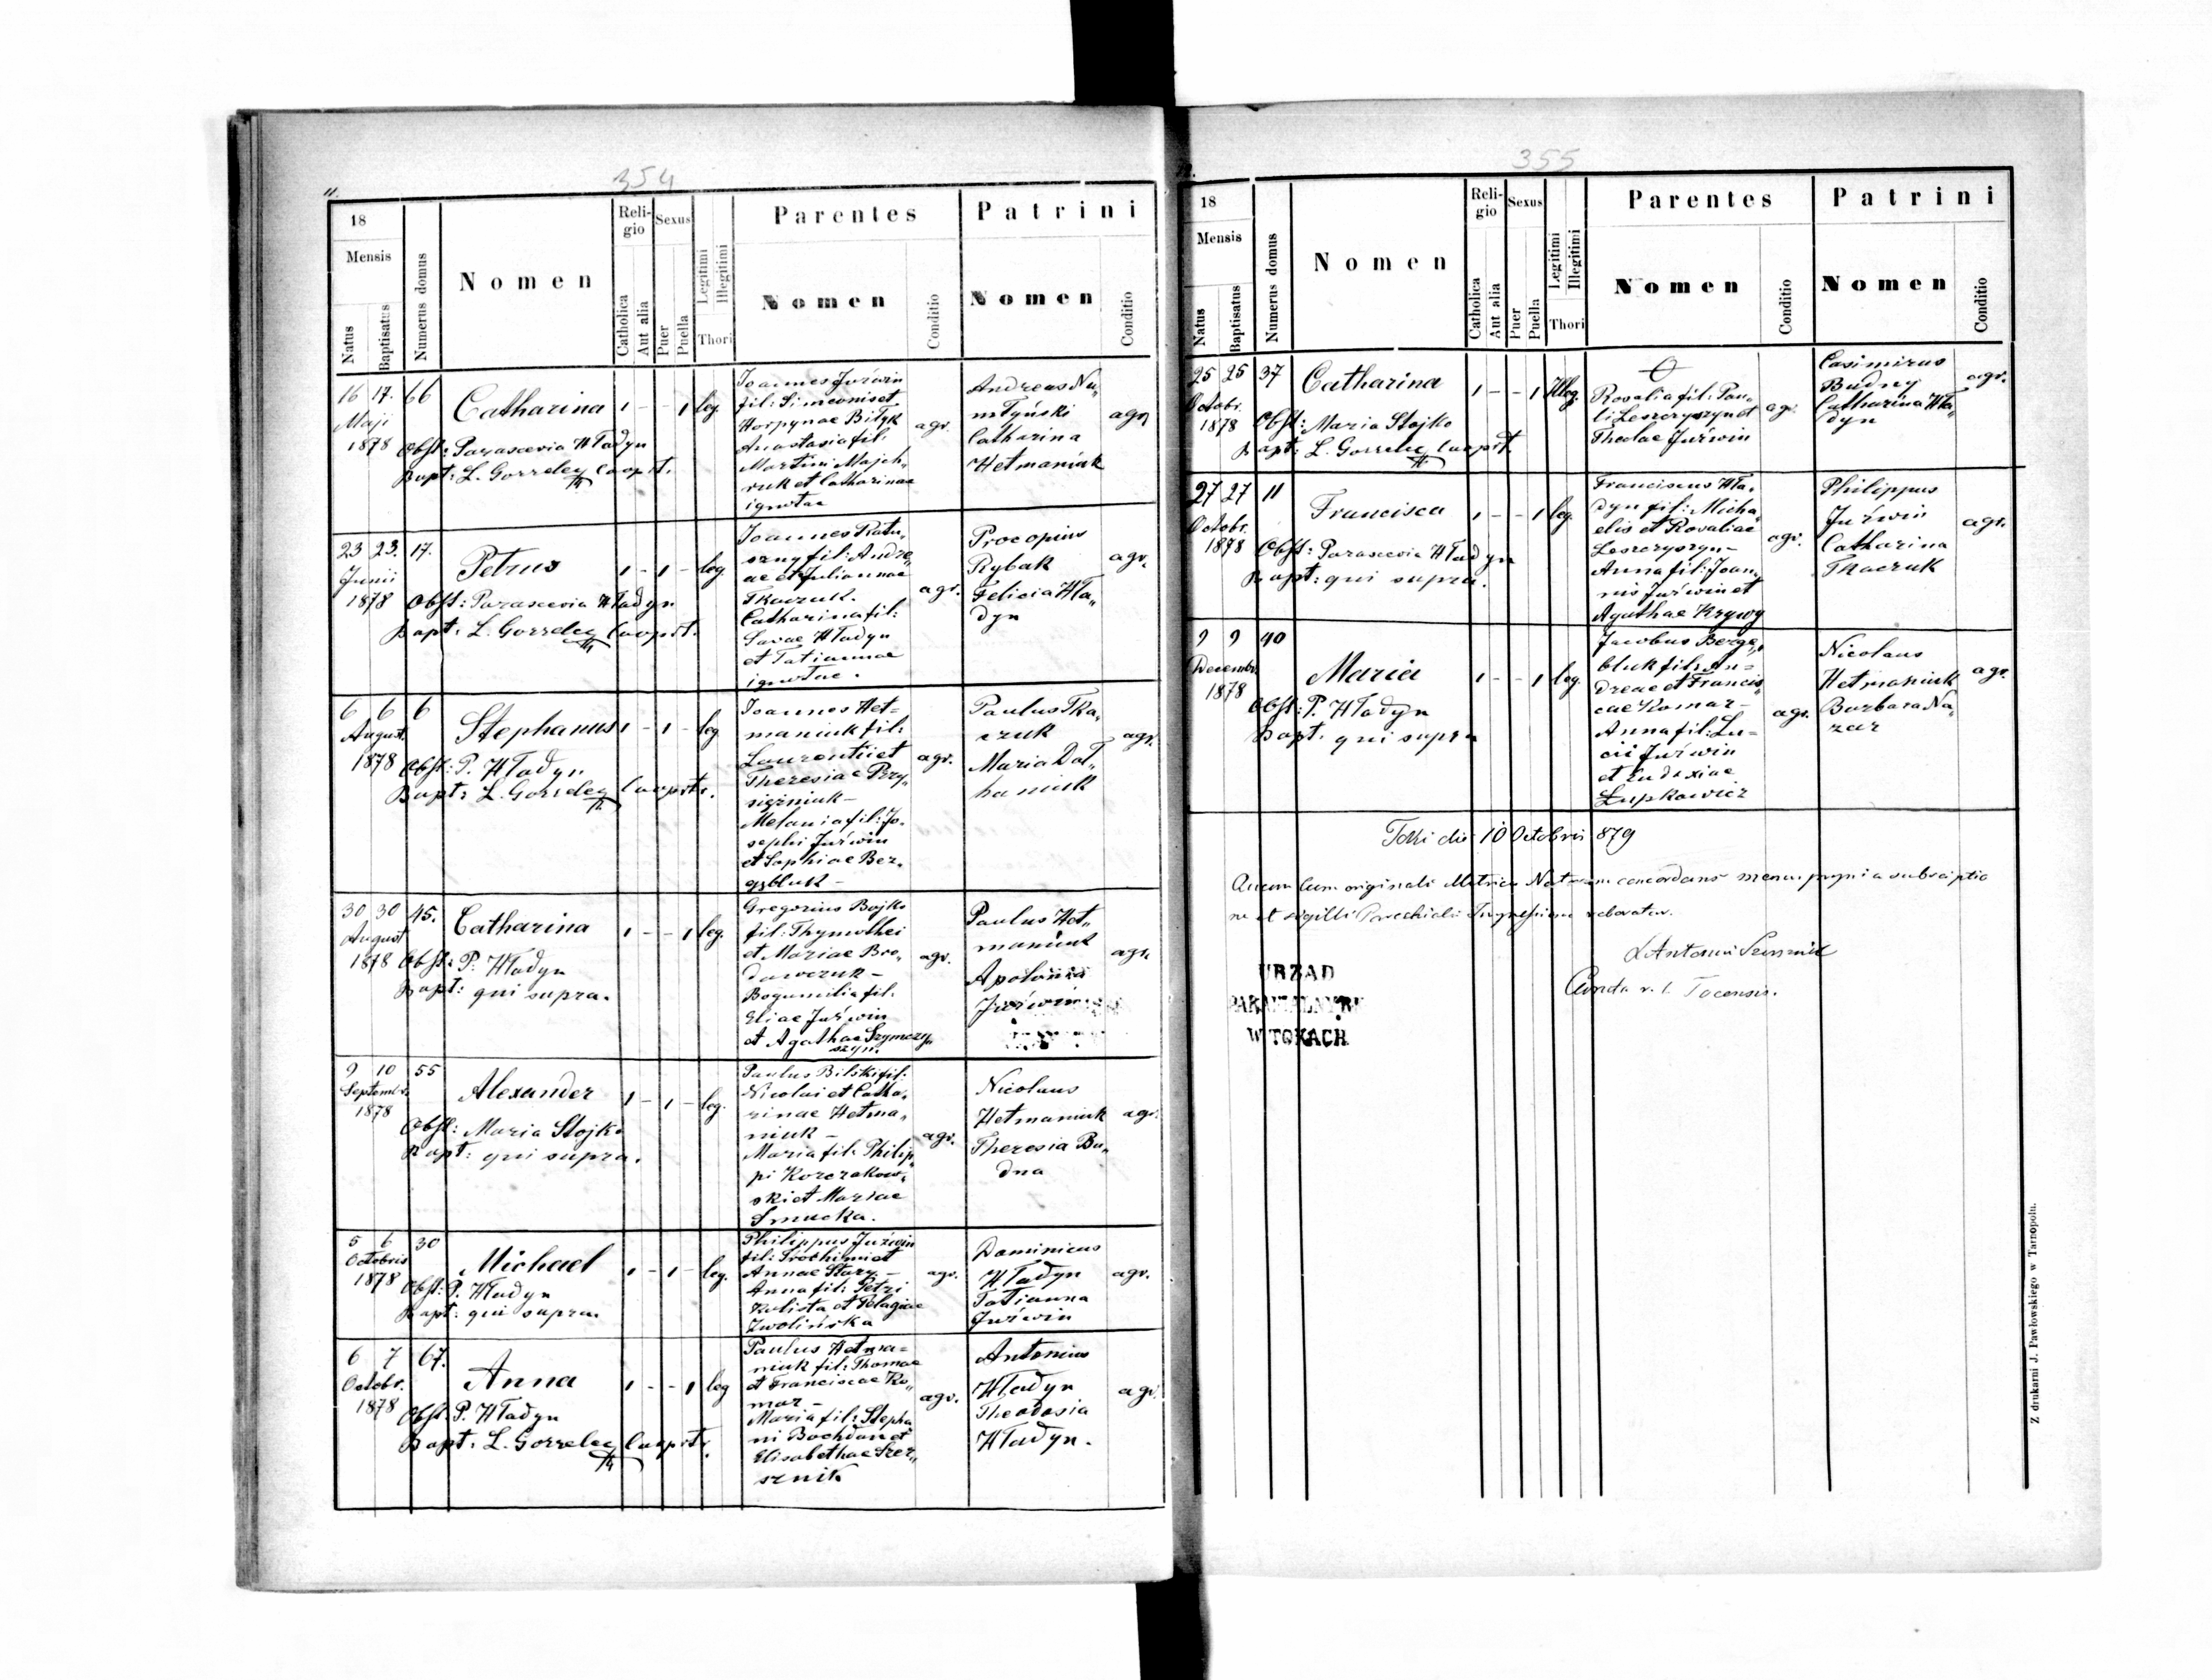 354
11.
18
Mensis
Natus
Baptisatus
Numerus domus
Nomen
Religio
Catholica
Aut alia
Sexus
Puer
Puella
Legitimi
Illegitimi
Thori
Parentes
Nomen
Conditio
Patrini
Nomen
Conditio
16 17. 66
Maji
1878
Catharina 1 - - 1 leg.
Obst: Parascevia Hładyn
Bapt: L. Gorzelec Cooprt.
Joannes Juźwin
fil: Simeonis et
Horpynae Biłyk
Anastasia fil:
Martini Majch„
ruk et Catharinae
ignotae
agr.
Andreas Na„
młyński
Catharina
Hetmaniuk
agr.
23 23. 17.
Junii
1878
Petrus 1 - 1 - leg.
Obst: Parascevia Hładyn
Bapt: L. Gorzelec Cooprt.
Joannes Ratu„
szny fil: Andre„
ae et Juliannae
Tkaczuk.
Catharina fil:
Savae Hładyn
et Tatiannae
ignotae.
agr.
Procopius
Rybak
Felicia Hła„
dyn
agr.
6 6 6
August.
1878
Stephanus 1 - 1 - leg
Obst: P. Hładyn
Bapt: L. Gorzelec Cooprtr.
Joannes Het=
maniuk fil:
Laurentii et
Theresiae Przy„
siężniuk -
Melania fil: Jo„
sephi Juźwin
et Sophiae Ber„
gybluk -
agr.
Paulus Tka„
czuk
Maria Doł„
haniuk
agr.
30 30 45.
August
1878
Catharina 1 - - 1 leg.
Obst: P. Hładyn
Bapt: qui supra.
Gregorius Bojko
fil: Thymothei
et Mariae Bro„
dawczuk -
Bogumilia fil:
Eliae Juźwin
et Agathae Szymczy
szyn.
agr.
Paulus Het„
maniuk
Apolonia
Juźwin
agr.
9 10 55
Septembr.
1878
Alexander 1 - 1 - leg.
Obst: Maria Stojko
Bapt: qui supra.
Paulus Bilski fil:
Nicolai et Catha„
rinae Hetma„
niuk -
Maria fil: Philip„
pi Korczakow„
ski et Mariae
Smucka.
agr.
Nicolaus
Hetmaniuk
Theresia Bu„
dna
agr.
5 6 30
Octobris
1878
Michael 1 - 1 - leg.
Obst: P. Hładyn
Bapt: qui supra.
Philippus Juźwin
fil: Trochimi et
Annae Stary -
Anna fil: Petri
Kulista et Pelagiae
Zwolińska
agr.
Dominicus
Hładyn
Tatianna
Juźwin
agr.
6 7 67.
Octobr.
1878
Anna 1 - - 1 leg
Obst. P. Hładyn
Bapt: L. Gorzelec Cooprtr.
Paulus Hetma=
niuk fil: Thomae
et Franciscae Ko„
mar -
Maria fil: Stepha
ni Bochdan et
Elisabethae Szer„
sznik
agr.
Antonius
Hładyn
Theodosia
Hładyn.
agr.
355
12.
18
Mensis
Natus
Baptisatus
Numerus domus
Nomen
Religio
Catholica
Aut alia
Sexus
Puer
Puella
Legitimi
Illegitimi
Thori
Parentes
Nomen
Conditio
Patrini
Nomen
Conditio
25 25 37
Octobr.
1878
Catharina 1 - - 1 Illeg.
Obst: Maria Stojko
Bapt: L. Gorzelec Cooprt.
Rosalia fil: Pau„
li Leszczyszyn et
Theclae Juźwin
agr.
Casimirus
Budny
Catharina Hła„
dyn
agr.
27 27 11
Octobr.
1878
Francisca 1 - - 1 leg.
Obst: Parascevia Hładyn
Bapt: qui supra.
Franciscus Hła„
dyn fil: Micha„
elis et Rosaliae
Leszczyszyn -
Anna fil: Joan„
nis Juźwin et
Agathae Krywy
agr.
Philippus
Juźwin
Catharina
Tkaczuk
agr.
9 9 40
Decembr.
1878
Maria 1 - - 1 leg.
Obst: P. Hładyn
Bapt. qui supra
Jacobus Berge„
bluk fil: An=
dreae et Francis„
cae Komar -
Anna fil: Lu=
cii Juźwin
et Eudoxiae
Łupkowicz
agr.
Nicolaus
Hetmaniuk
Barbara Na„
zar
agr.
Toki die 10 Octobris 879
cum originali Metrica Natorum concordans manu propria subscriptio
ne et sigilli Parochialis Impressione roboratur.
Antonius
URZĄD
PARAFIALNY
W TOKACH
r. l. Tocensis.
Z drukarni J. Pawłowskiego w Tarnopolu.